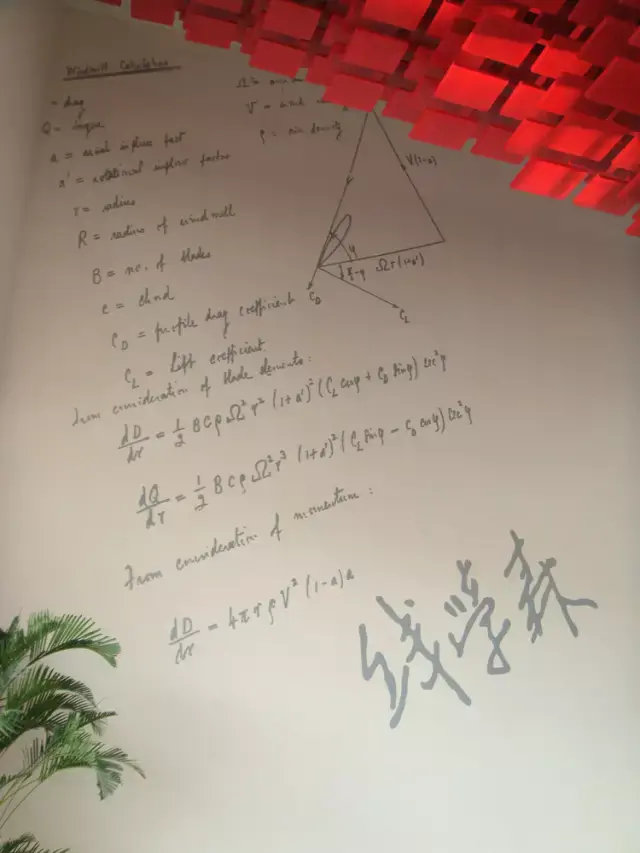 Windmill Calculations
= drag
Q = torque
a = axial inflow fact
a' = rotational inflow factor
r = radius
R = radius of windmill
B = no. of blades
c = chord
C_D = profile drag coefficient
C_L = Lift coefficient
Ω =
V = wind
ρ = air density
V(1-a)
φ
Ωr(1+a')
C_D
C_L
From consideration of blade elements:
dD/dr = 1/2 B c ρ Ω² r² (1+a')² (C_L cos φ + C_D sin φ) sec² φ
dQ/dr = 1/2 B c ρ Ω² r³ (1+a')² (C_L sin φ - C_D cos φ) sec² φ
From consideration of momentum:
dD/dr = 4πr ρ V² (1-a) a
钱学森